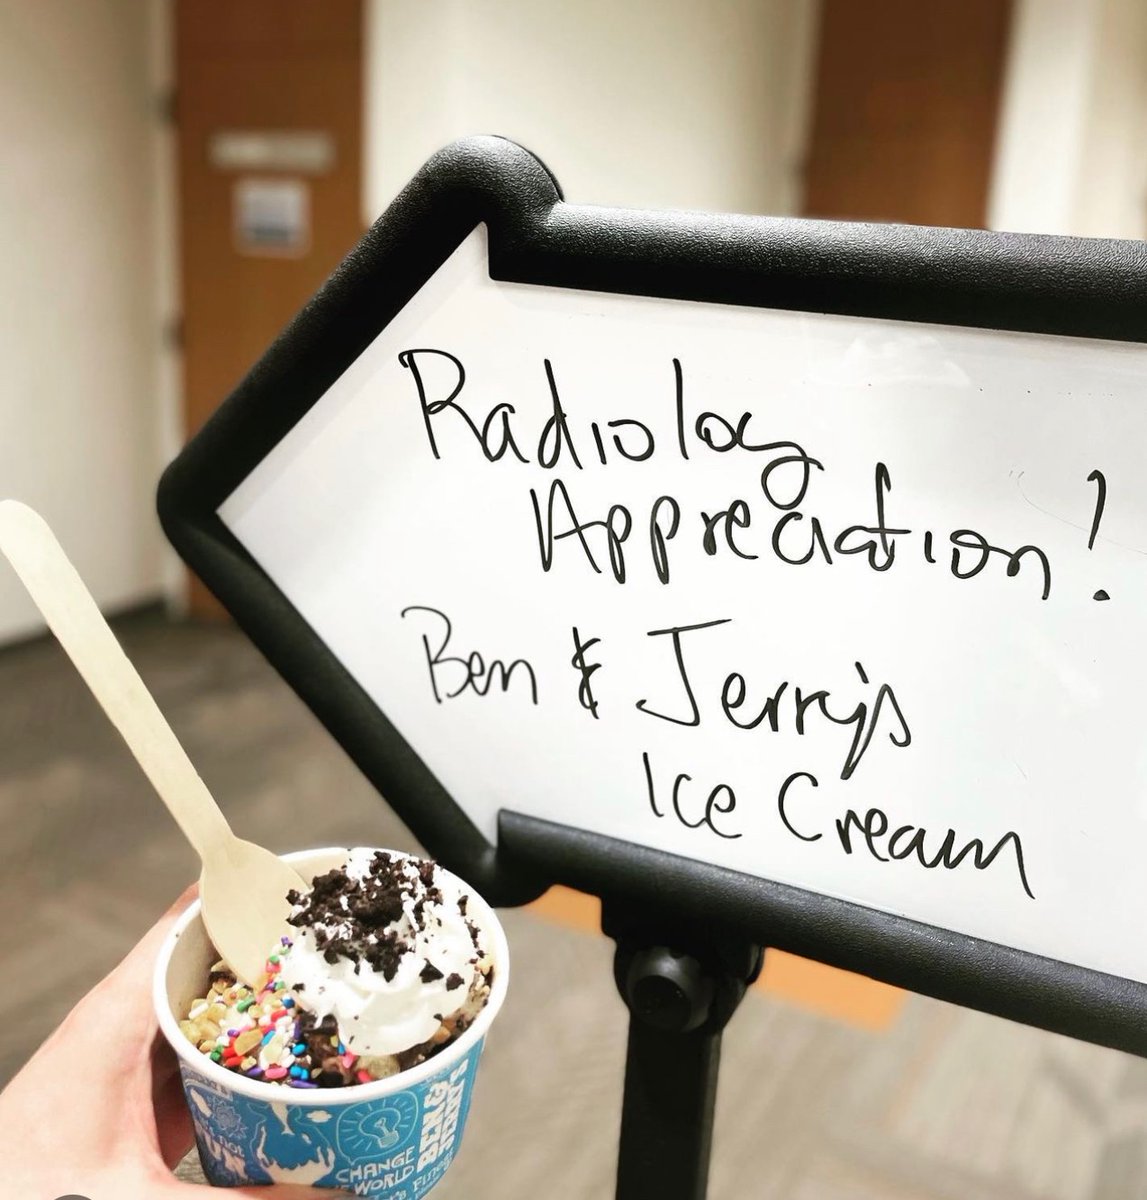 Radiology
Appreciation!
Ben & Jerry's
Ice Cream
BEN &
JERRY'S
CHANGE
THE WORLD